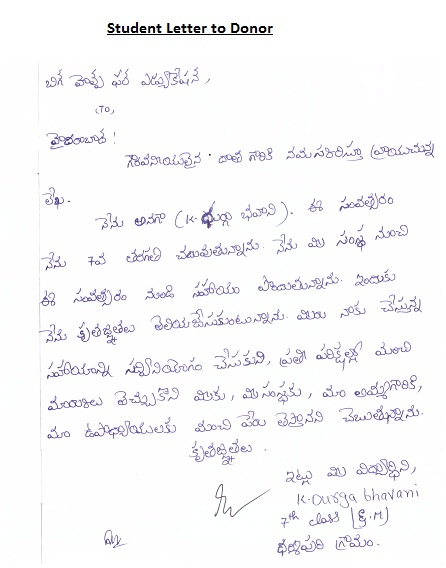 Student Letter to Donor
బిగ్ హెల్ప్ ఫర్ ఎడ్యుకేషన్,
(TO,
హైదరాబాద్!
గౌరవనీయులైన దాత గారికి నమస్కరిస్తూ వ్రాయుచున్న
లేఖ.
నేను అనగా (K. దుర్గా భవాని). ఈ సంవత్సరం
నేను 7వ తరగతి చదువుతున్నాను. నేను మీ సంస్థ నుంచి
ఈ సంవత్సరం నుండి సహాయం పొందుతున్నాను. ఇందుకు
నేను కృతజ్ఞతలు తెలియజేసుకుంటున్నాను. మీరు నాకు చేస్తున్న
సహాయాన్ని సద్వినియోగం చేసుకుని, ప్రతీ పరీక్షల్లో మంచి
మార్కులు తెచ్చుకొని మీకు, మీ సంస్థకు, మా అమ్మగారికి,
మా ఉపాధ్యాయులకు మంచి పేరు తెస్తానని చెబుతున్నాను.
కృతజ్ఞతలు.
ఇట్లు మీ విద్యార్థిని,
K. Durga bhavani
7th class (E.M)
గ్రామం.